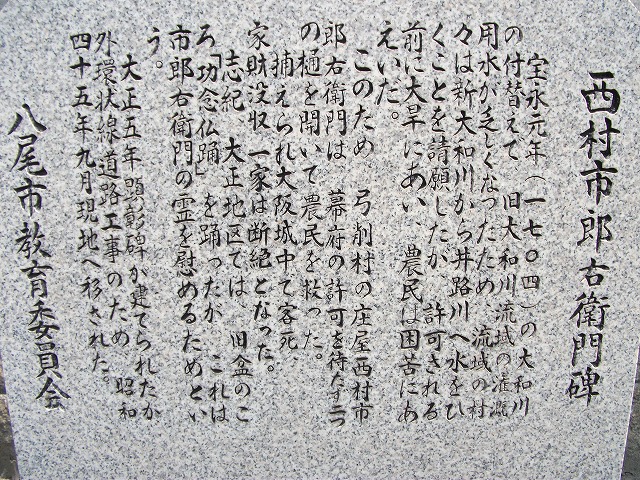 西村市郎右衛門碑
宝永元年(一七〇四)の大和川
の付替えで 旧大和川流域の灌漑
用水が乏しくなったため 流域の村
々は新大和川から井路川へ水をひ
くことを請願したが 許可される
前に大旱にあい、農民は困苦にあ
えいた。
このため 弓削村の庄屋西村市
郎右衛門は 幕府の許可を待たず二つ
の樋を開いて農民を救った。
捕えられ大阪城中で客死
家財没収 一家は断絶となった。
志紀 大正地区では 旧盆のこ
ろ「功念仏踊」を踊ったが これは
市郎右衛門の霊を慰めるためとい
う。
大正五年 顕彰碑が建てられたが
外環状線道路工事のため 昭和
四十五年九月現地へ移された。
八尾市教育委員会